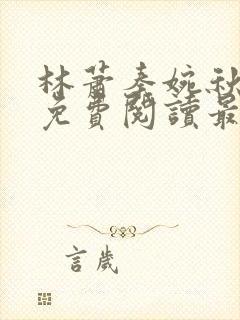 林蕭秦婉秋
免費閱讀最
言歲